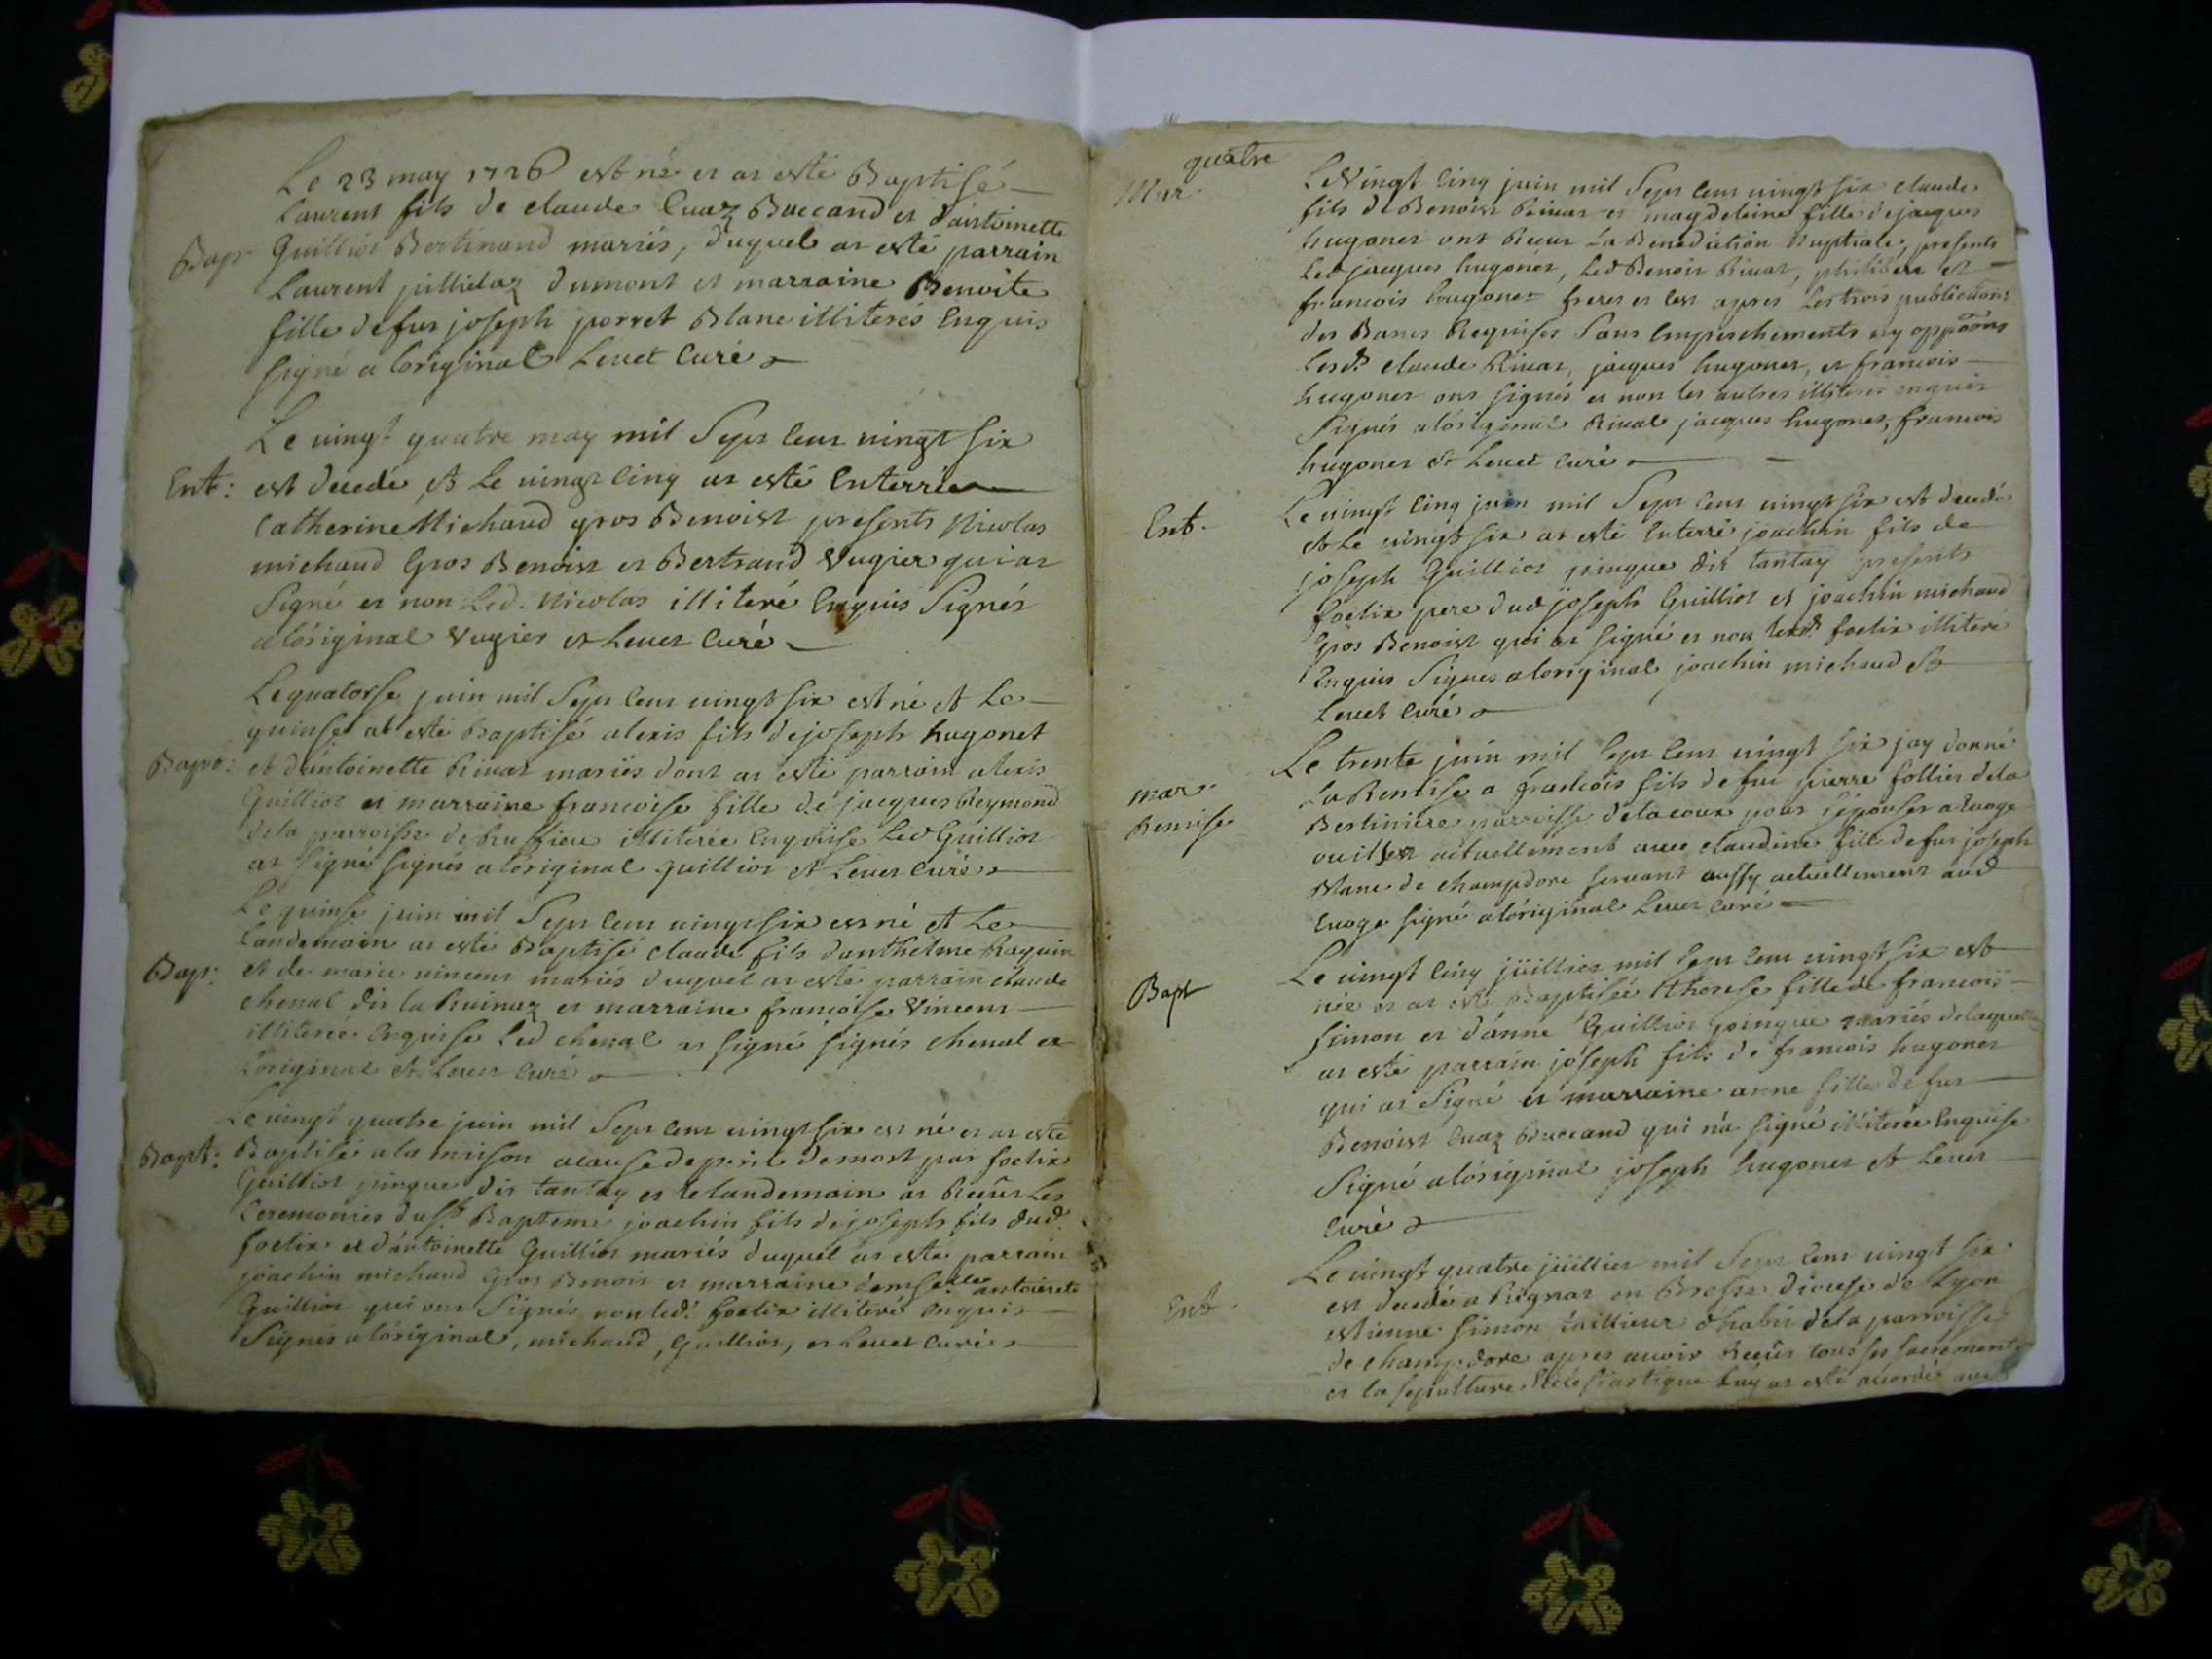 Le 23 may 1726 est né et at esté Baptisé
Laurent fils de claude Cuaz Buccand et d'antoinette
Bap Guilliot Bertinand mariés, duquel at esté parrain
Laurent jullietaz Dumont et marraine Benoite
fille de fut joseph porret Blanc illiterés Enquis
signé a loriginal Levet Curé
Le vingt quatre may mil Sept Cent vingt six
Ent: est decedé, et Le vingt cinq at esté Enterrée
Catherine Michaud gros Benoist presents Nicolas
michaud Gros Benoist et Bertrand Vugier qui at
Signé et non Led. Nicolas illiteré Enquis Signés
a lóriginal Vugier et Levet Curé
Le quatorse juin mil Sept Cent vingt six est né et Le
quinse at esté Baptisé alexis fils de joseph hugonet
Bapt: et d'antoinette Rivat mariés dont at esté parrain alexis
Guilliot et marraine francoise fille de jacques Reymond
de la parroisse de Ruffieu illiterée Enquise Led Guilliot
at signé signés a lóriginal guilliot et Levet Curé
Le quinse juin mil Sept Cent vingt six est né et Le
Landemain at esté Baptisé claude fils danthelme
Bap: et de marie vincent mariés duquel at esté parrain claude
chenal dit la Ruinaz et marraine francoise Vincent
illiterée Enquise Led chenal at signé signés chenal a
Loriginal et Levet Curé
Le vingt quatre juin mil Sept Cent vingt six est né et at esté
Bapt: Baptisé a la maison a cause de peril de mort par foelix
Guilliot pingue dit tantay et le landemain at Receüt Les
Ceremonies du st Bapteme joachin fils de joseph fils dud.
foelix et d'ántoinette Guilliot mariés duquel at esté parrain
joachin michaud Gros Benoit et marraine demselle antoinete
Guilliot qui ont Signés non led. foelix illiteré enquis
Signés a lóriginal, michaud, Guilliot, et Levet Curé
quatre
Mar. Le Vingt Cinq juin mil Sept Cent vingt six claude
fils de Benoist Rivat et magdeleine fille de jacques
hugonet ont Receut La Benediction Nuptiale, presents
Led jacques hugonet, Led Benoit Rivat, philibert et
francois hugonet freres et cest apres Les trois publications
des Bancs Requises Sans Empeschements ny oppoõns
Lesd. claude Rivat, jacques hugonet, et francois
hugonet ont signés et non les autres illiterés enquis
Signés a lóriginal Rivat jacques hugonet, francois
hugonet et Levet Curé
Ent. Le vingt Cinq juin mil Sept Cent vingt six est decedé
et Le vingt six at esté Enterré joachin fils de
joseph Guilliot pingue dit tantay presents
foelix pere dud joseph Guilliot et joachin michaud
Gros Benoist qui at signé et non led. foelix illiteré
Enquis Signés a loriginal joachin michaud et
Levet Curé
mar. Remise Le trente juin mil Sept Cent vingt six jay donné
La Remise a francois fils de fut pierre follier de la
Bertiniere parroisse de la coux pour sépouser a
actuellement avec claudine fille de fut joseph
Blanc de champdore servant aussy actuellement aud
signé a lóriginal Levet Curé
Bapt Le vingt Cinq jüillier mil Sept Cent vingt six est
née et at esté Baptisée therese fille de francois
simon et d'ánne Guilliot pingue mariés de laquelle
at esté parrain jóseph fils de francois hugonet
qui at Signé et marraine anne fille de fut
Benoist Cuaz Buccand qui n'a signé illiterée Enquise
Signé a lóriginal joseph hugonet et Levet
Curé
Ent. Le vingt quatre jüillier mil Sept Cent vingt six
est decedé a Rignat en Bresse Diocese de Lyon
estienne Simon taillieur d'habit de la parroisse
de champdore apres avoir Receüt tous ses sacrements
et la sepulture Ecclesiastique Luy at esté accordée